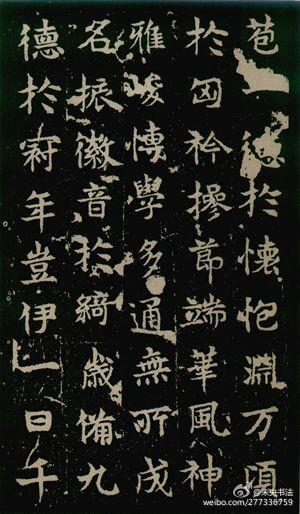 苞德於懷抱淵万頃
於匈衿操節端華風神
雅峻博學多通無所成
名振徽音於綺歲備九
德於冠年豈伊日千
@朱央书法
weibo.com/277336759